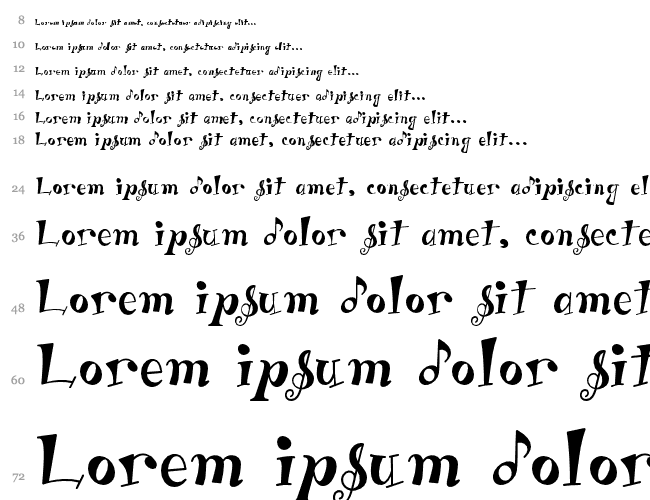 8 Lorem ipsum dolor sit amet, consectetuer adipiscing elit...
10 Lorem ipsum dolor sit amet, consectetuer adipiscing elit...
12 Lorem ipsum dolor sit amet, consectetuer adipiscing elit...
14 Lorem ipsum dolor sit amet, consectetuer adipiscing elit...
16 Lorem ipsum dolor sit amet, consectetuer adipiscing elit...
18 Lorem ipsum dolor sit amet, consectetuer adipiscing elit...
24 Lorem ipsum dolor sit amet, consectetuer adipiscing el
36 Lorem ipsum dolor sit amet, consecte
48 Lorem ipsum dolor sit amet
60 Lorem ipsum dolor sit
72 Lorem ipsum dolor